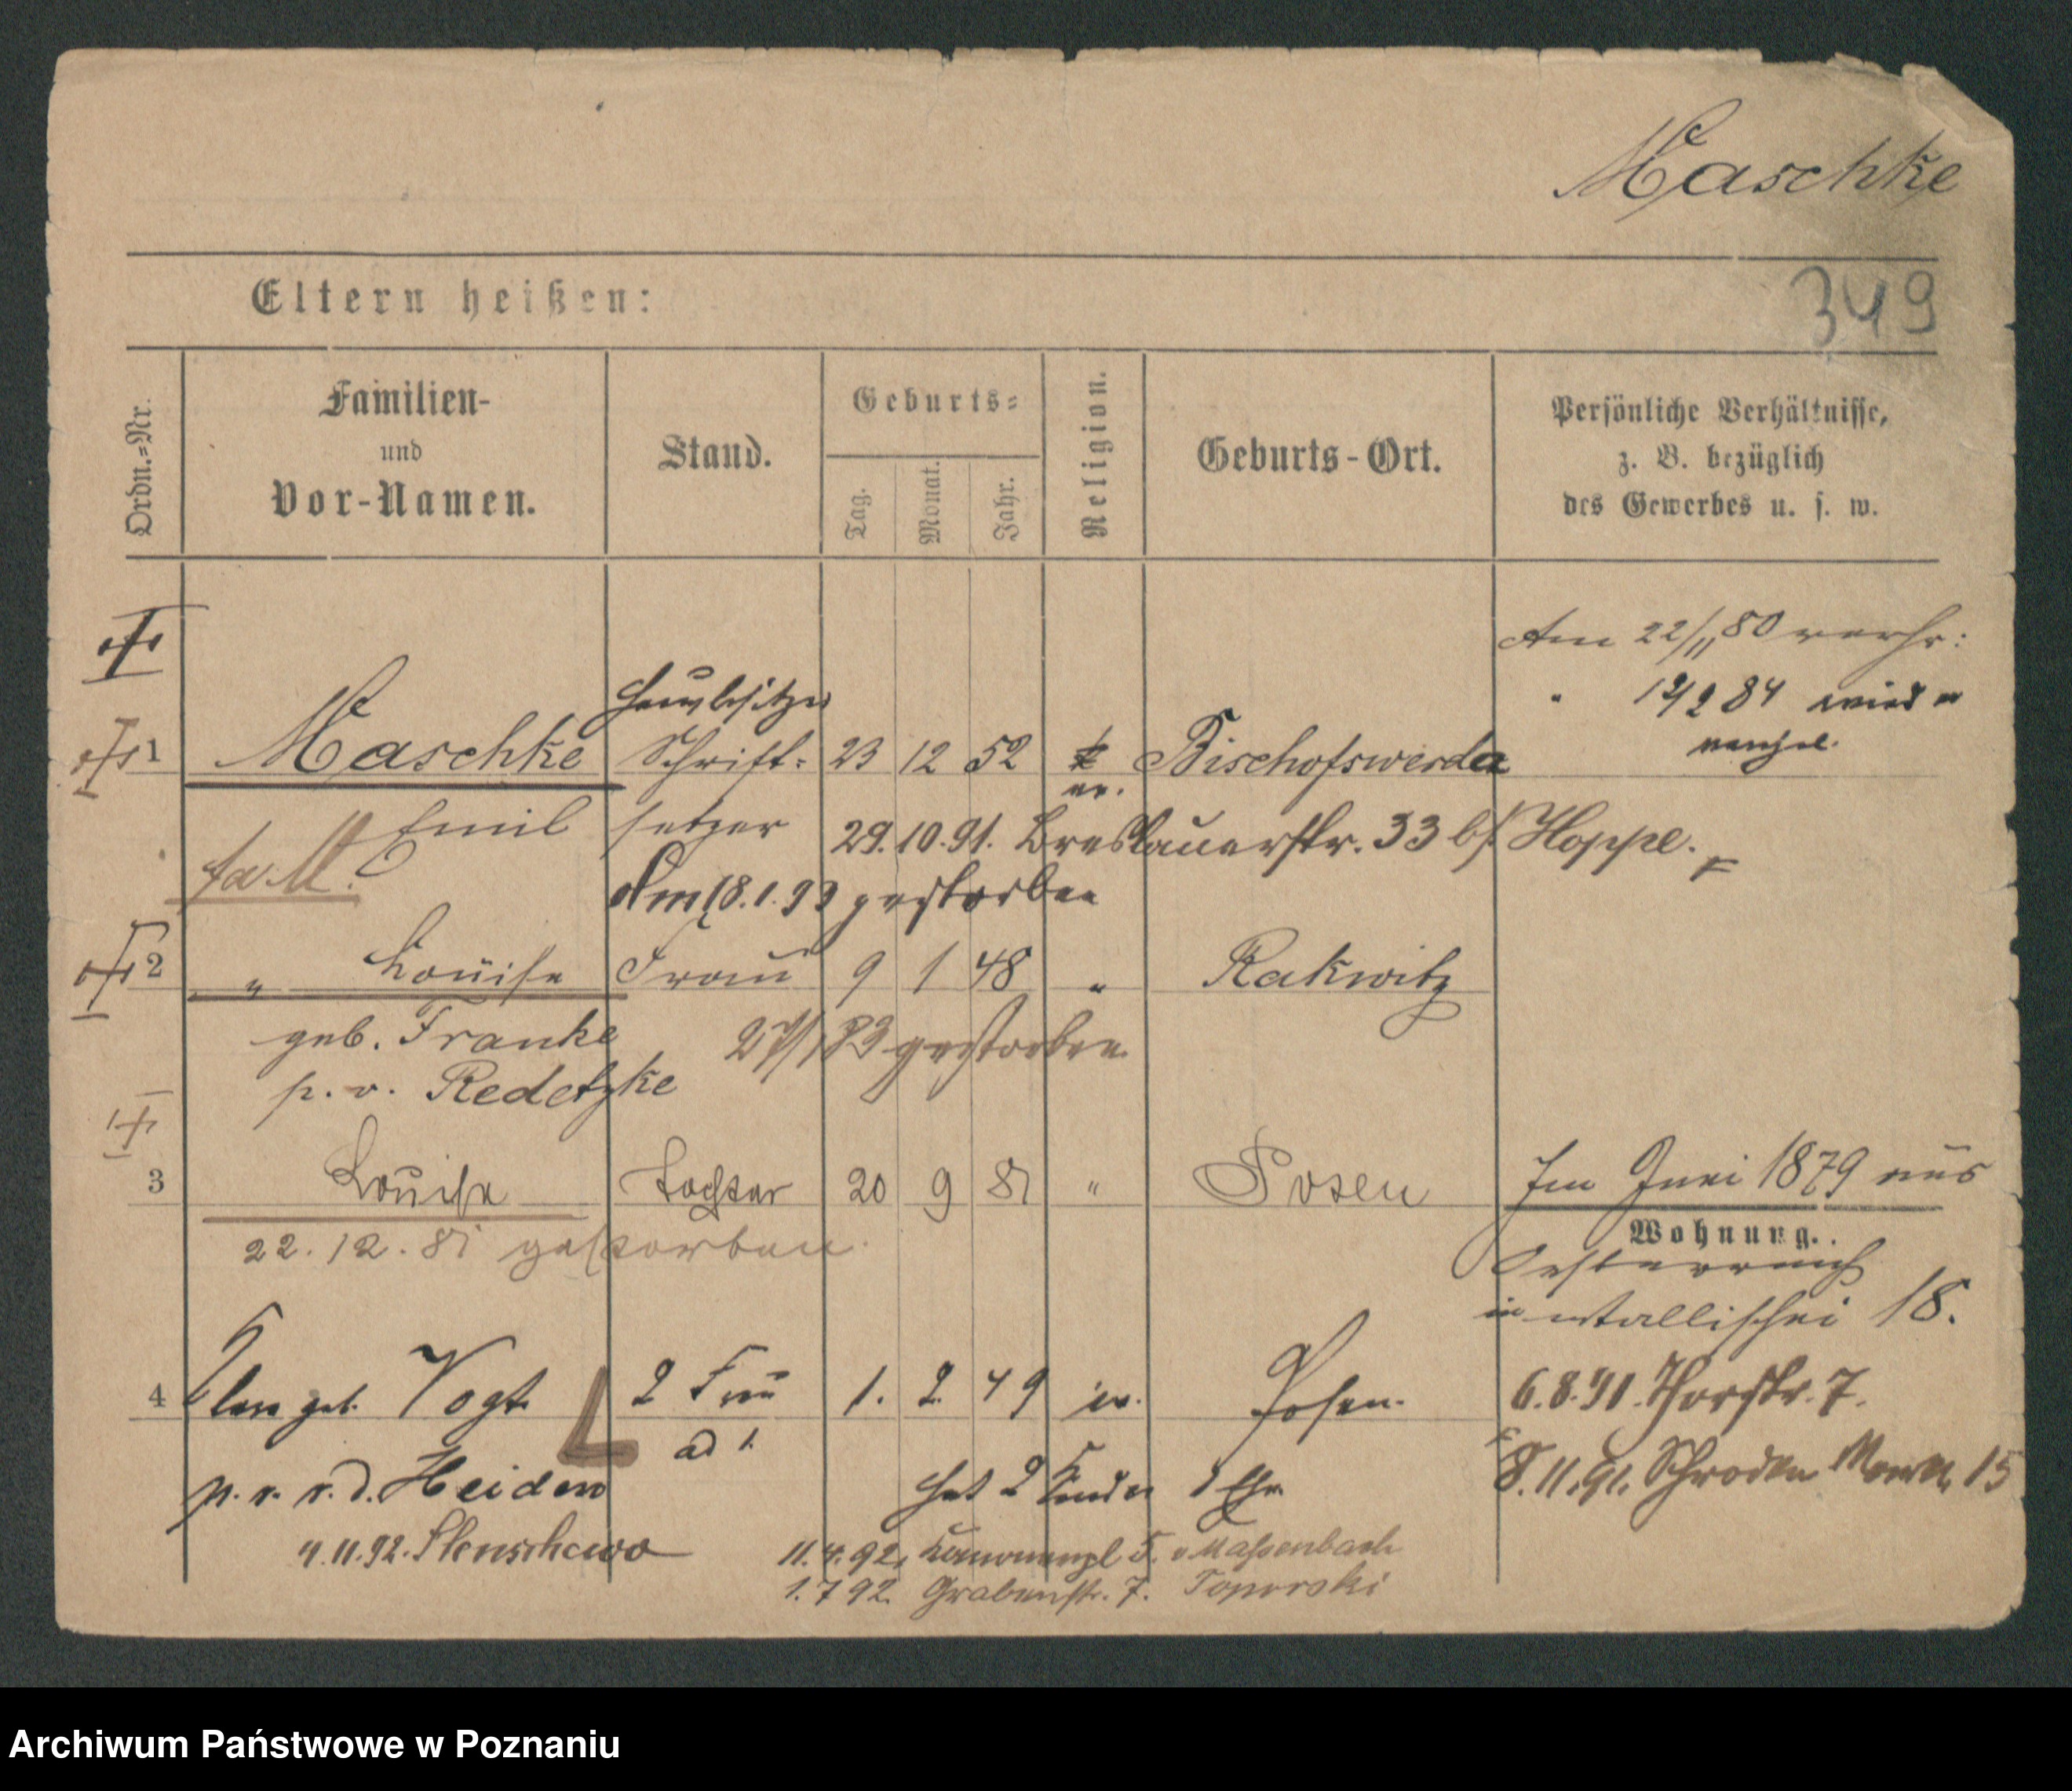 Maschke
349
Eltern heißen:
Ordn.-Nr.
Familien-
und
Vor-Namen.
Stand.
Geburts-
Tag.
Monat.
Jahr.
Religion.
Geburts-Ort.
Persönliche Verhältnisse,
z. B. bezüglich
des Gewerbes u. s. w.
Am 22/11 80 verh:
" 12/2 84 wieder
Hausbesitzer
1 Maschke Schrift- 23 12 52 k Bischofswerda
ev.
Emil setzer 29.10.91. Breslauerstr. 33 b/ Hoppe.
Am 18.1.93 gestorben
2 " Louise Frau 9 1 48 " Rakwitz
geb. Franke gestorben
p. v. Redetzke
3 Louise Tochter 20 9 81 " Posen Im Juni 1879 aus
22.12.81 gestorben.
Wohnung.
Oesterreich
Wallischei 18.
4 geb. Vogt 2 Frau 1. 2. 49 ev. Posen. 6.8.91. Thorstr. 7.
ad 1.
p. v. v. d. Heiden hat 2 Kinder 1 Ehe 8.11.91. Schroden 15
4.11.92. Stenschewo 11.4.92, 5. v Massenbach
1.7 92. Grabenstr. 7. Toporski
Archiwum Państwowe w Poznaniu